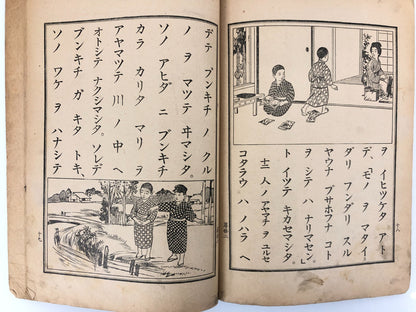 ヲ イヒツケタ アト
デ、モノ ヲ マタイ
ダリ フンダリ スル
ヤウナ ブサホフナ コト
ヲ シテ ハ ナリマセン。」
ト イツテ キカセマシタ。
十二 人ノ アヤマチ ヲ ユルセ
コタラウ ハ ノハラ ヘ
十八
デテ ブンキチ ノ クル
ノ ヲ マツテ ヰマシタ。
ソノ アヒダ ニ ブンキチ
カラ カリタ マリ ヲ
アヤマツテ 川 ノ 中 ヘ
オトシテ ナクシマシタ。ソレデ
ブンキチ ガ キタ トキ、
ソノ ワケ ヲ ハナシテ
十九